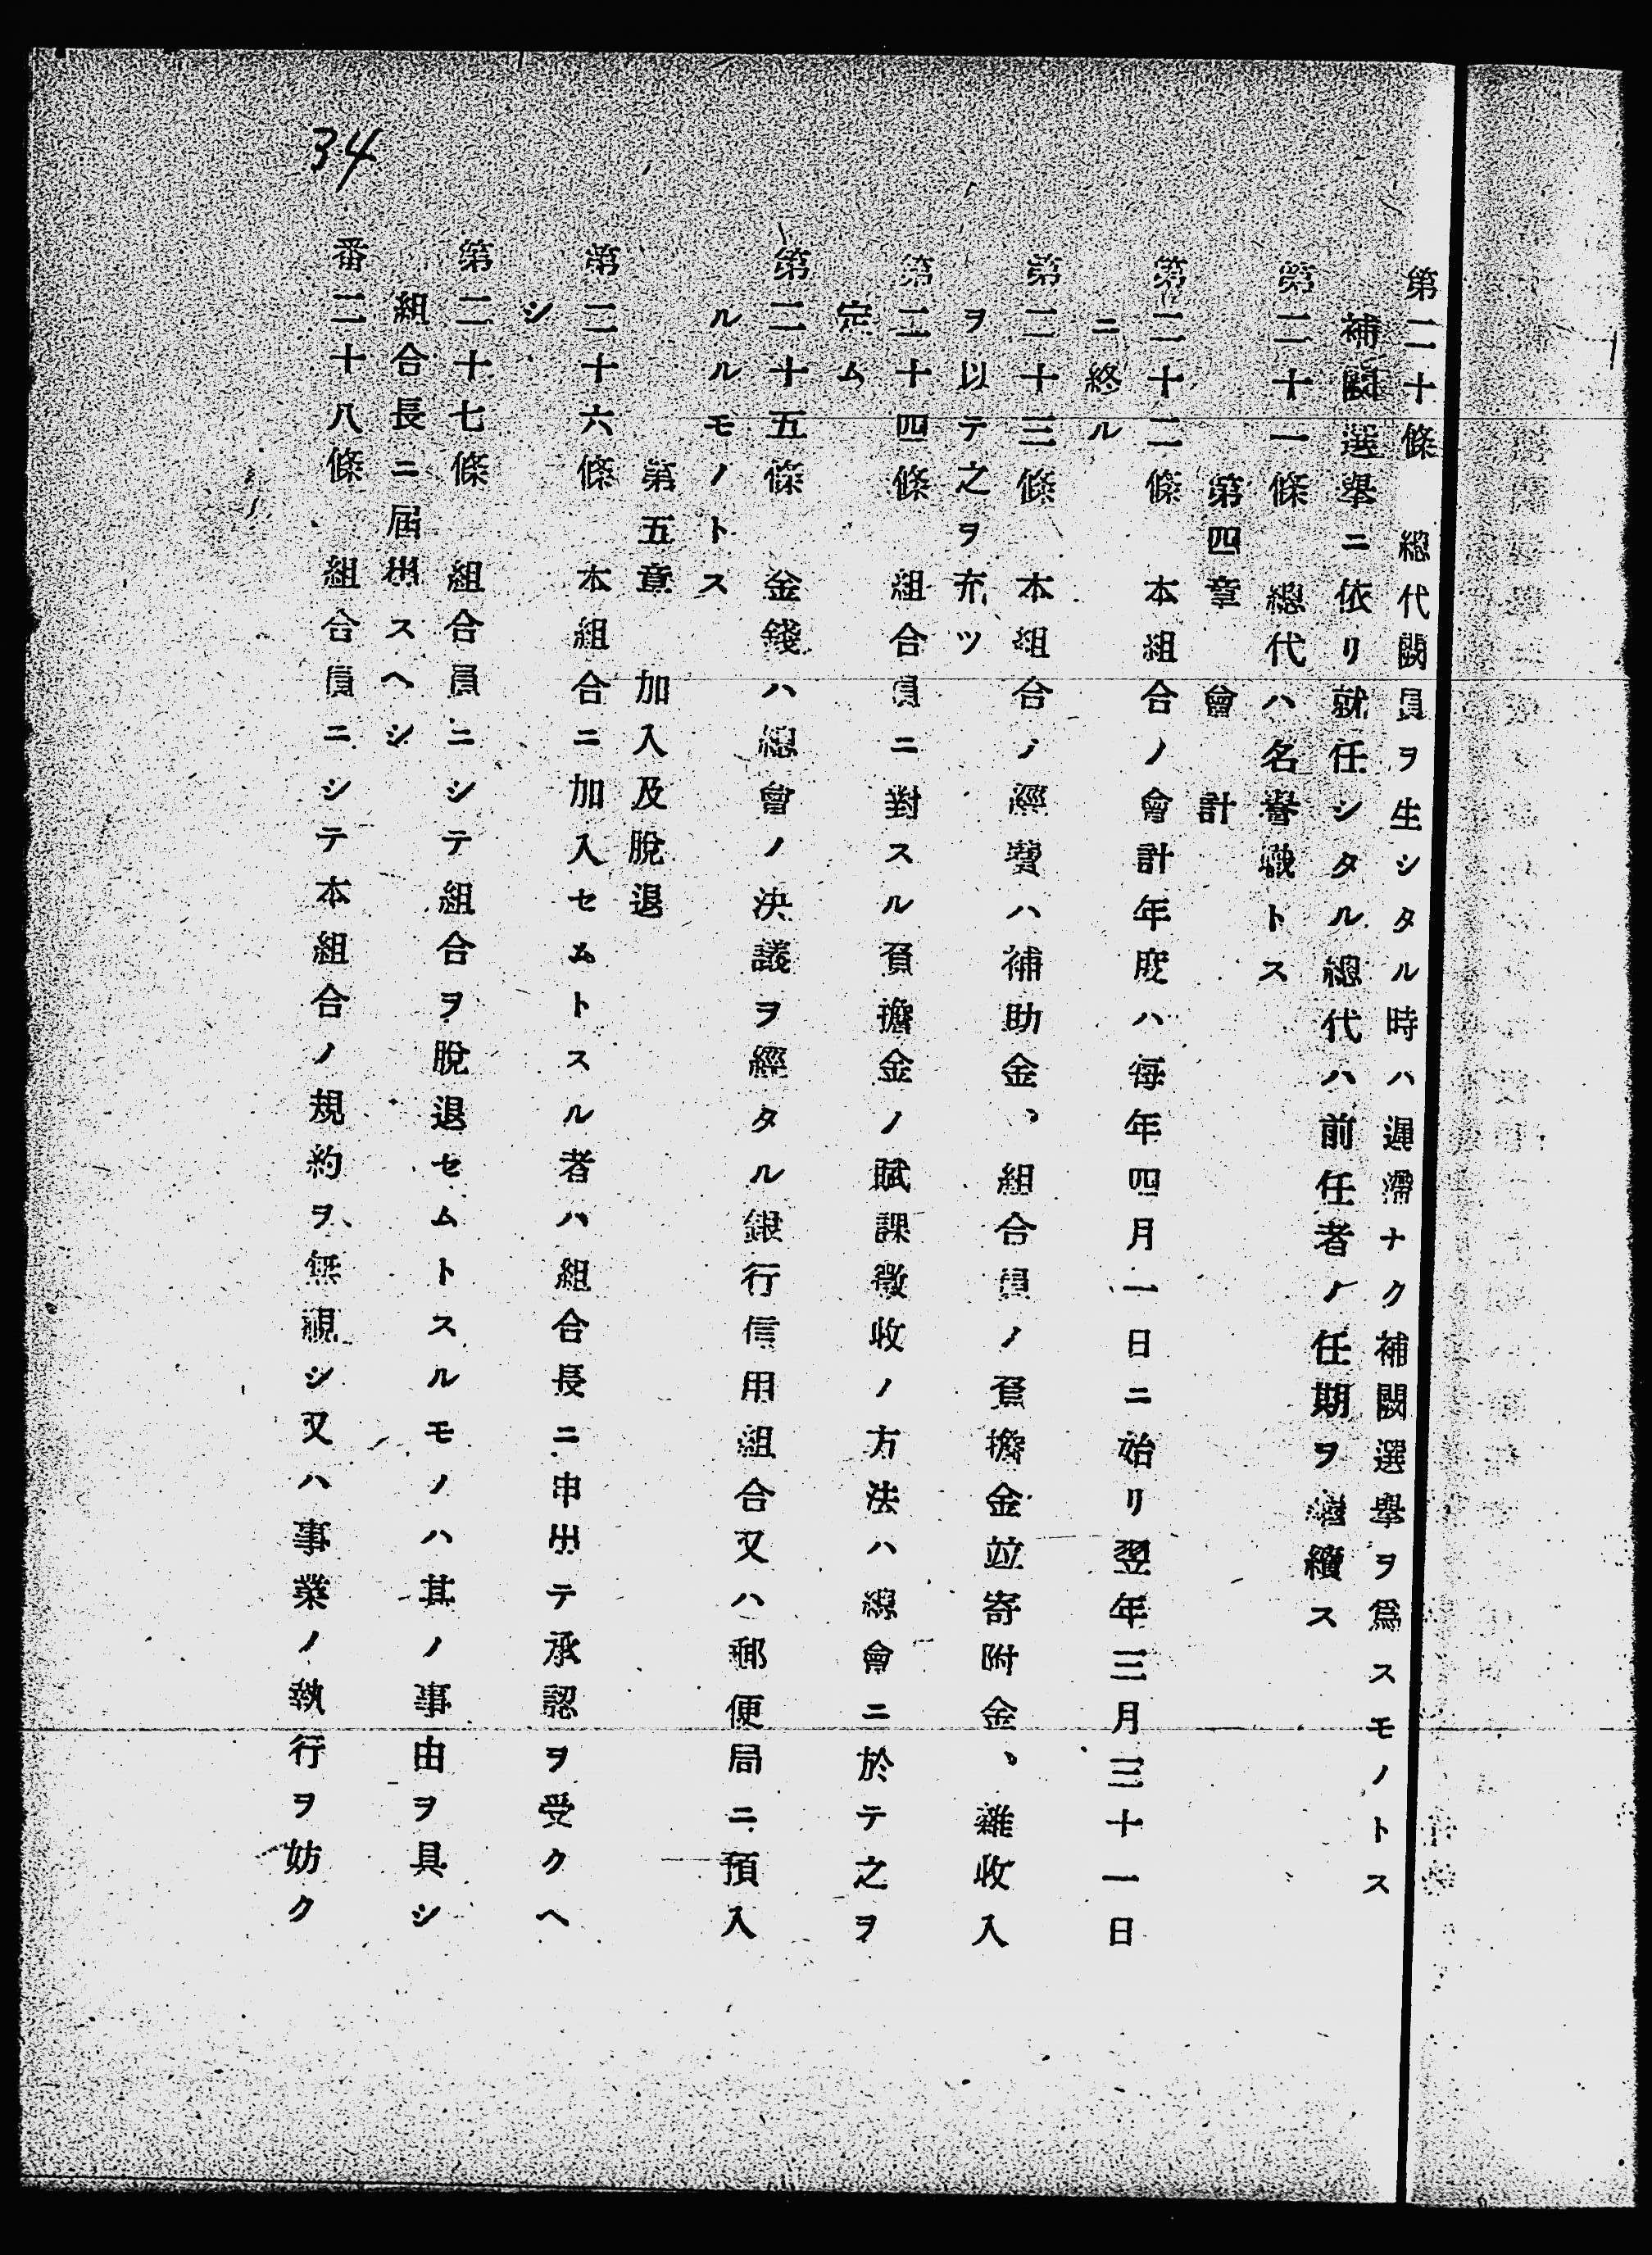 34
第二十條　總代闕員ヲ生シタル時ハ遲滯ナク補闕選擧ヲ爲スモノトス
補闕選擧ニ依リ就任シタル總代ハ前任者ノ任期ヲ繼續ス
第二十一條　總代ハ名譽職トス
第四章　會計
第二十二條　本組合ノ會計年度ハ毎年四月一日ニ始リ翌年三月三十一日
ニ終ル
第二十三條　本組合ノ經費ハ補助金、組合員ノ負擔金竝寄附金、雜收入
ヲ以テ之ヲ充ツ
第二十四條　組合員ニ對スル負擔金ノ賦課徵收ノ方法ハ總會ニ於テ之ヲ
定ム
第二十五條　金錢ハ總會ノ決議ヲ經タル銀行信用組合又ハ郵便局ニ預入
ルルモノトス
第五章　加入及脫退
第二十六條　本組合ニ加入セムトスル者ハ組合長ニ申出テ承認ヲ受クヘ
シ
第二十七條　組合員ニシテ組合ヲ脫退セムトスルモノハ其ノ事由ヲ具シ
組合長ニ届出スヘシ
番二十八條　組合員ニシテ本組合ノ規約ヲ無視シ又ハ事業ノ執行ヲ妨ク